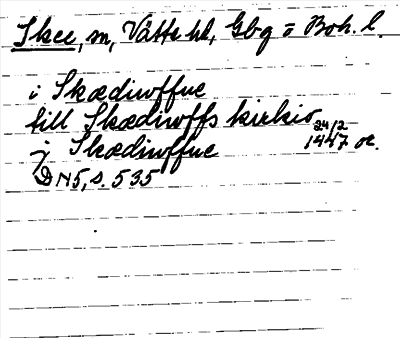 Skee, sn, Vätte hd, Gbg o Boh. l.
i Skædiuoffue
till Skædiuoffs kirkio
j Skædiuoffue 24/2 1447 or.
DN 5, s. 535